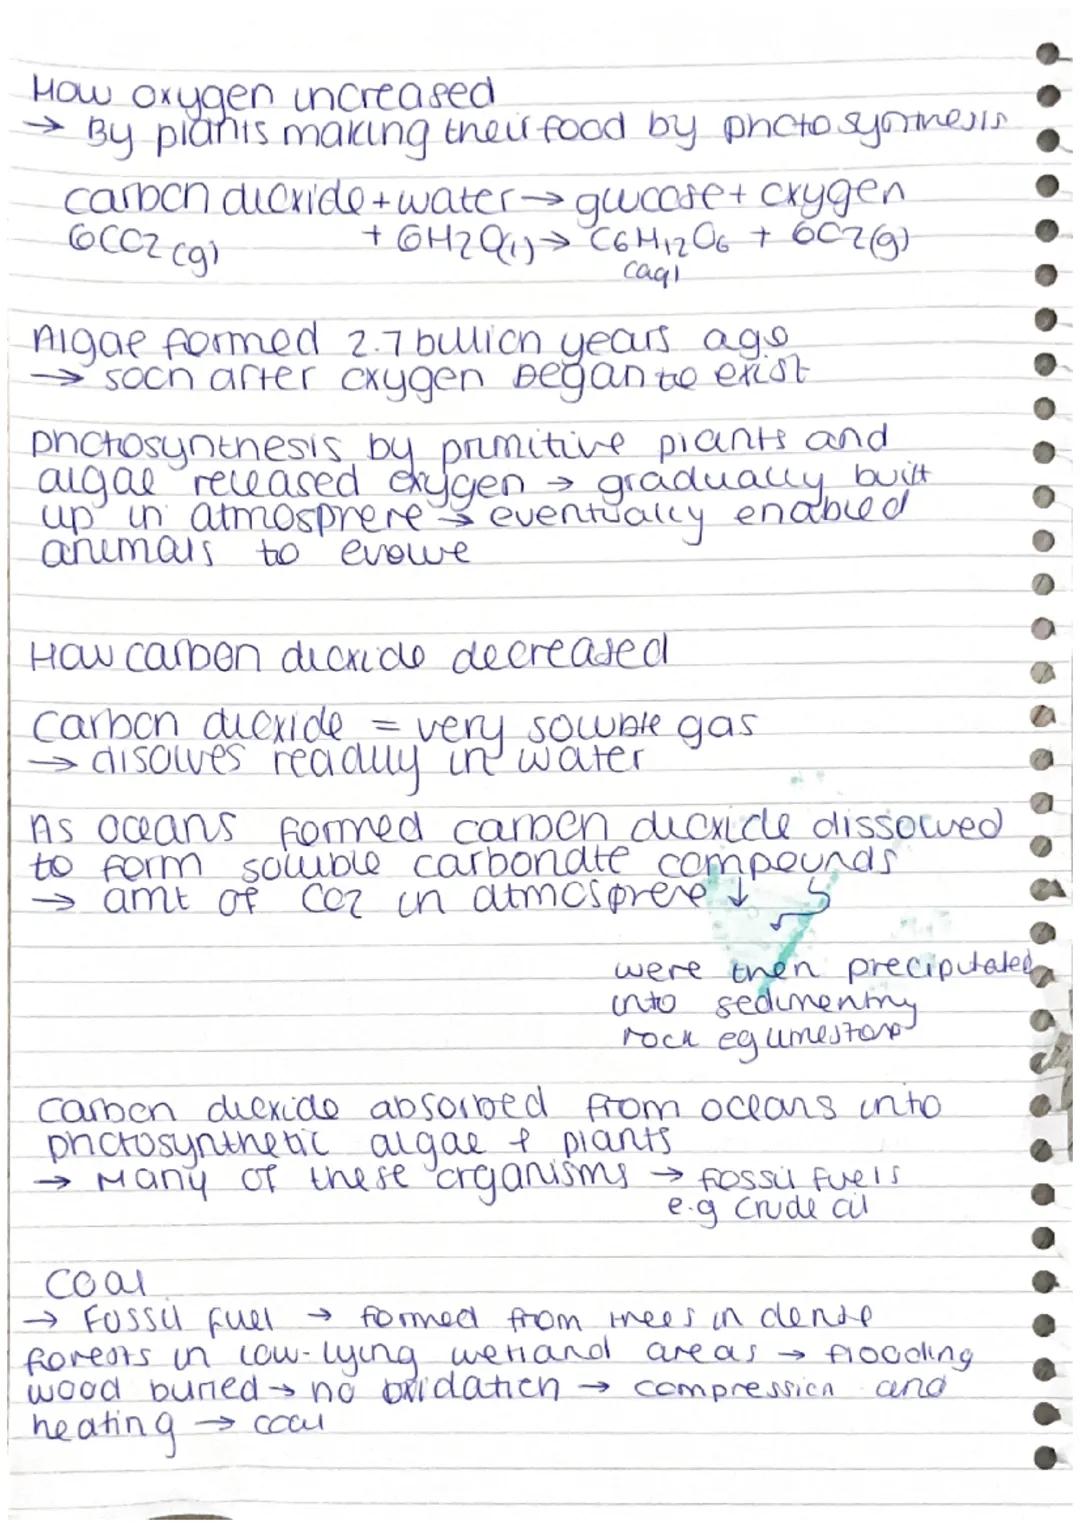 How oxygen increased
→ By plants making their food by photosynthesis
carbon dioxide + water → glucose + oxygen
6CO2 (g) + 6H2O(l) → C6H12O6 + 6O2(g)
(aq)
Algae formed 2.7 billion years ago
→ soon after oxygen began to exist
photosynthesis by primitive plants and
algae released oxygen → gradually built
up in atmosphere → eventually enabled
animals to evolve
How carbon dioxide decreased
Carbon dioxide = very soluble gas
→ disolves readily in water
As oceans formed carbon dioxide dissolved
to form soluble carbonate compounds
→ amt of CO2 in atmosphere ↓
were then precipitated
into sedimentry
rock eg limestone
Carbon dioxide absorbed from oceans into
photosynthetic algae + plants
→ Many of these organisms → fossil fuels
e.g crude oil
Coal
→ Fossil fuel → formed from trees in dense
forests in low-lying wetland areas → flooding
wood buried → no oxidation → compression and
heating → coal